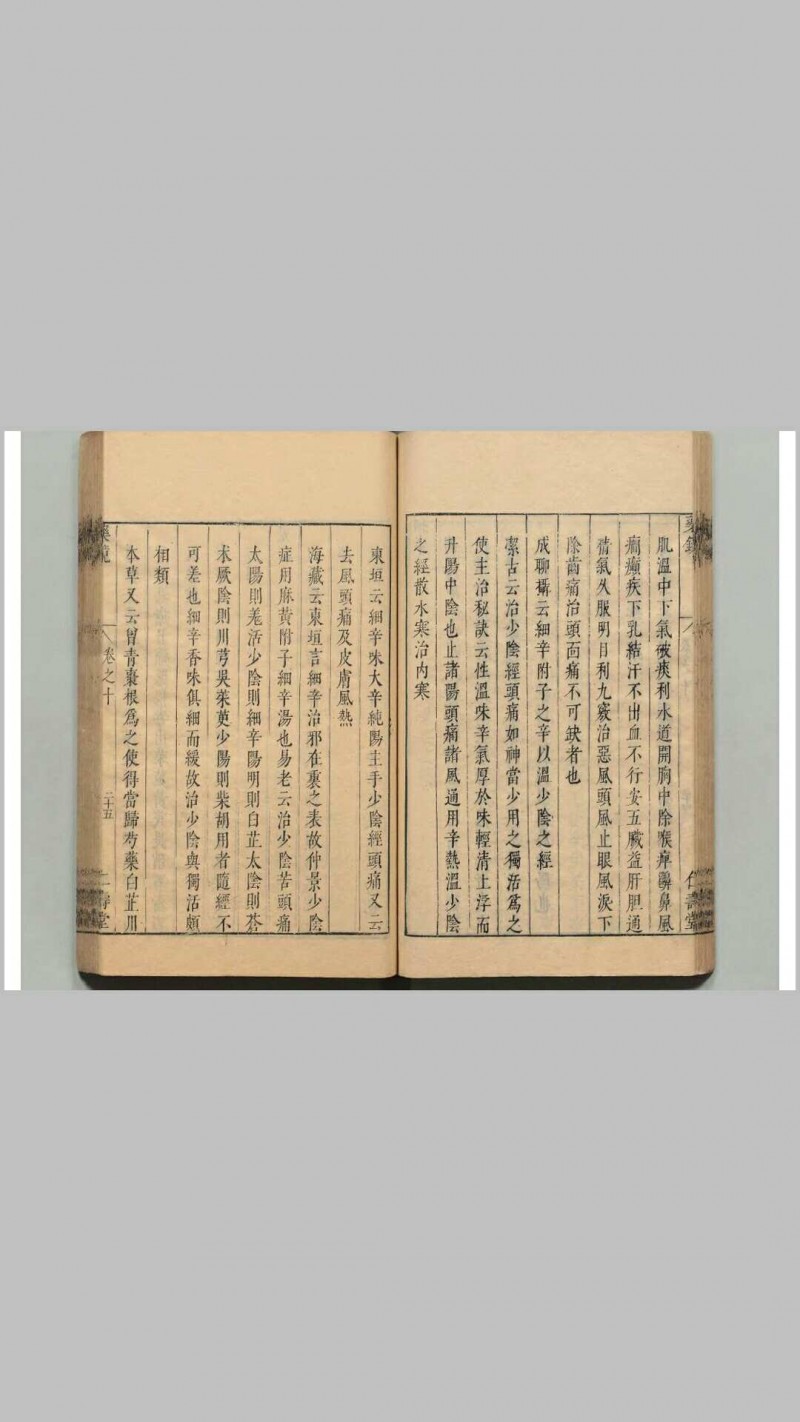 肌溫中下氣破痰利水道開胸中除喉痺齆鼻風
癎癲疾下乳結汗不出血不行安五臟益肝胆通
精氣久服明目利九竅治惡風頭風止眼風淚下
除齒痛治頭面痛不可缺者也
成聊攝云細辛附子之辛以溫少陰之經
潔古云治少陰經頭痛如神當少用之獨活爲之
使主治秘訣云性溫味辛氣厚於味輕清上浮而
升陽中陰也止諸陽頭痛諸風通用辛熱溫少陰
之經散水寒治内寒
東垣云細辛味大辛純陽主手少陰經頭痛又云
去風頭痛及皮膚風熱
海藏云東垣言細辛治邪在裏之表故仲景少陰
症用麻黄附子細辛湯也易老云治少陰苦頭痛
太陽則羌活少陰則細辛陽明則白芷太陰則蒼
术厥陰則川芎吳茱萸少陽則柴胡用者隨經不
可差也細辛香味俱細而緩故治少陰與獨活頗
相類
本草又云曾青棗根爲之使得當歸芍藥白芷川
藥鏡
卷之十
二十五
仁壽堂